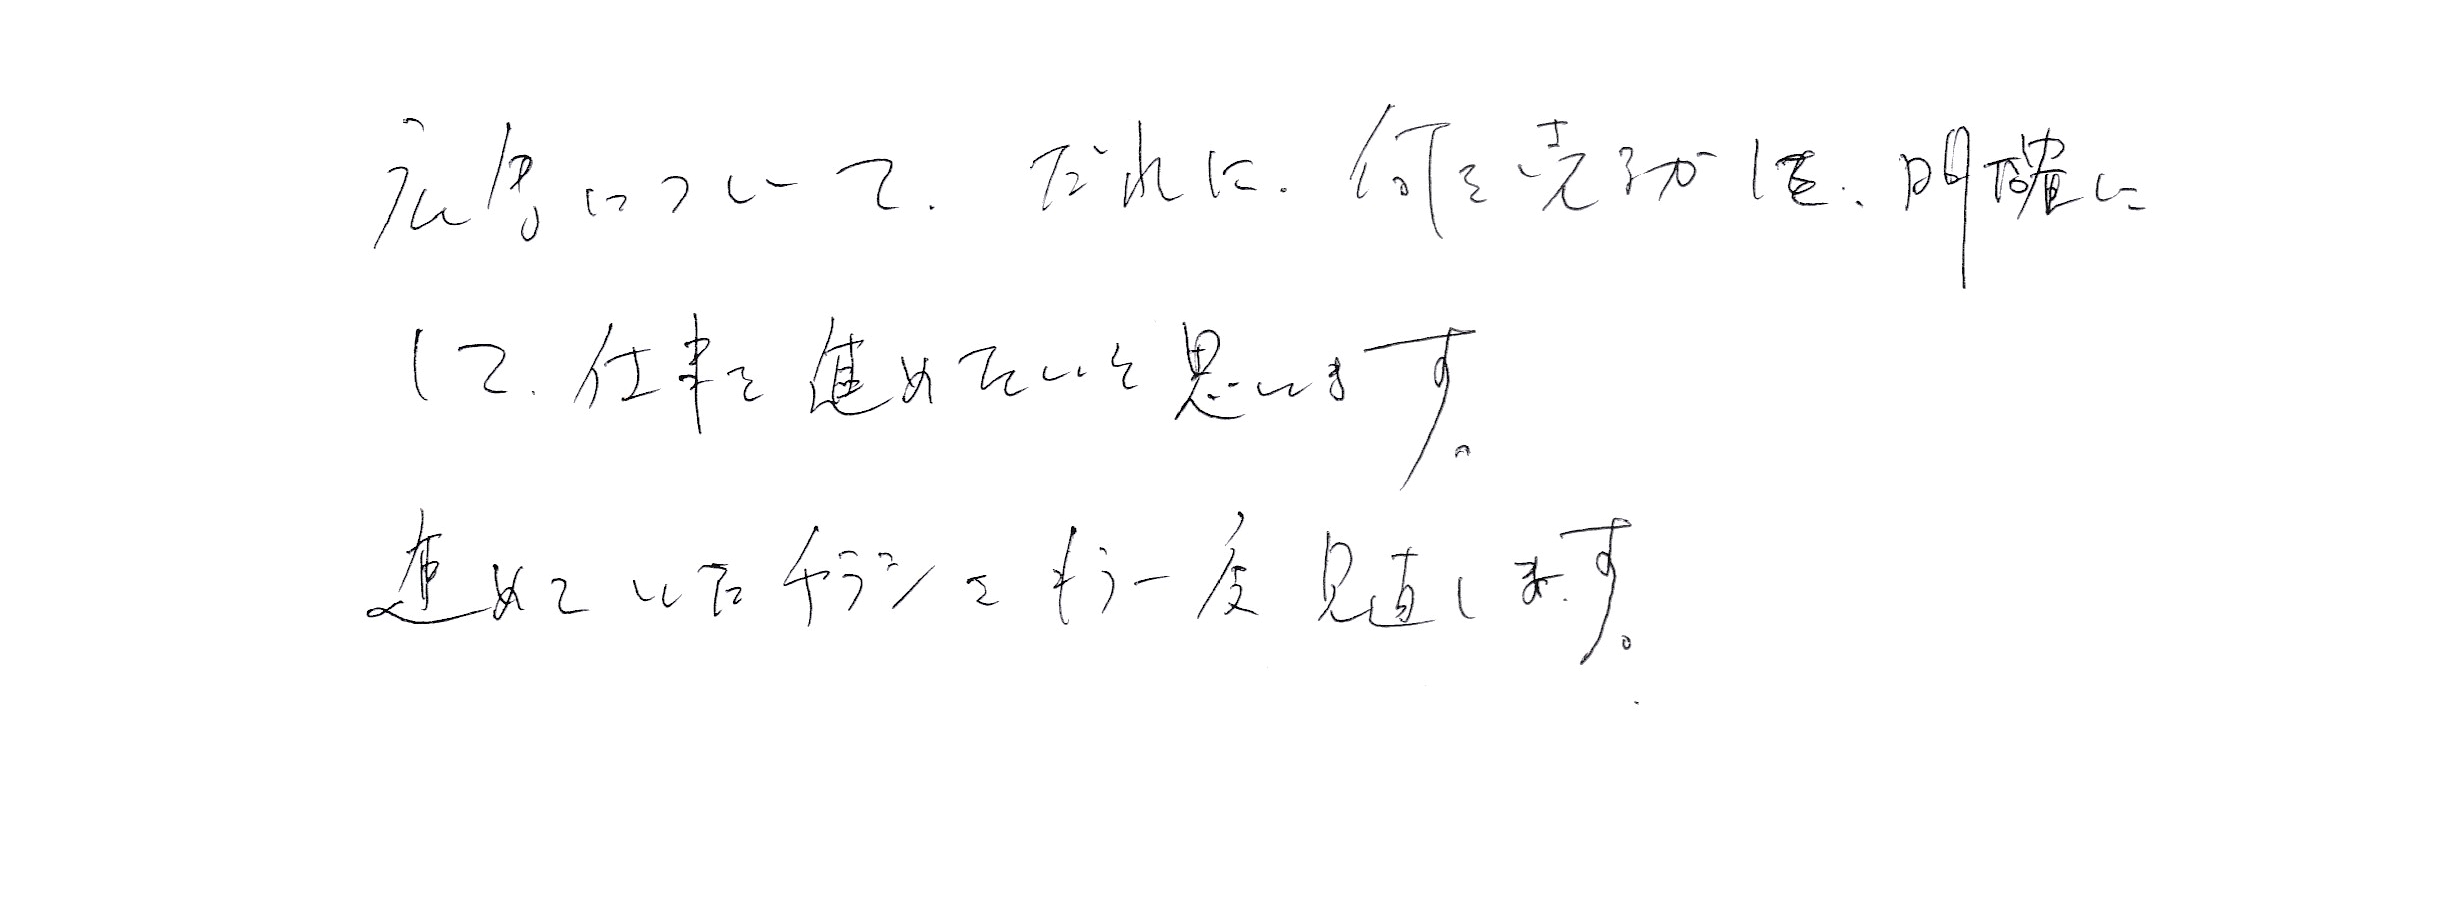 広告について、だれに、何を売るかを、明確に
して、仕事を進めたいと思います。
進めていたチラシをもう一度見直します。